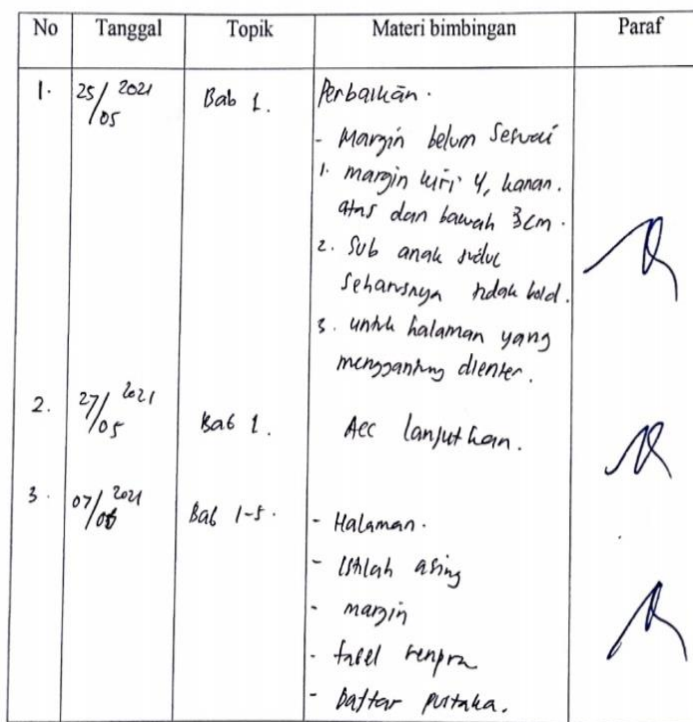 No Tanggal Topik Materi bimbingan Paraf
1. 25/05 2021 Bab 1. Perbaikan.
- Margin belum sesuai
1. margin kiri 4, kanan.
atas dan bawah 3cm.
2. Sub anak judul
seharusnya tidak bold.
3. untuk halaman yang
menggantung dienter.
2. 27/05 2021 Bab 1. Acc lanjutkan.
3. 07/06 2021 Bab 1-5. - Halaman.
- Istilah asing
- margin
- tabel renpra
- Daftar pustaka.